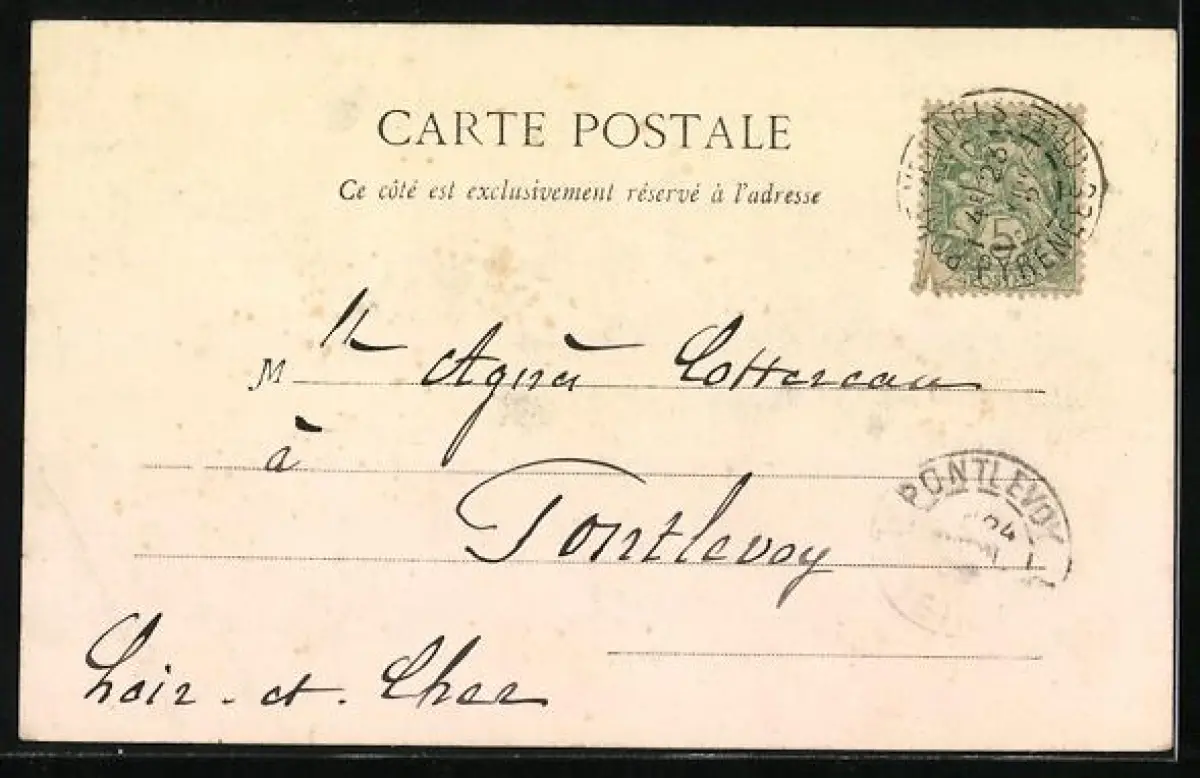 CARTE POSTALE
Ce côté est exclusivement réservé à l'adresse
PYRENEES
5
M lle Agnès Cottereau
à
Pontlevoy
PONTLEVOY
Loir-et-Cher